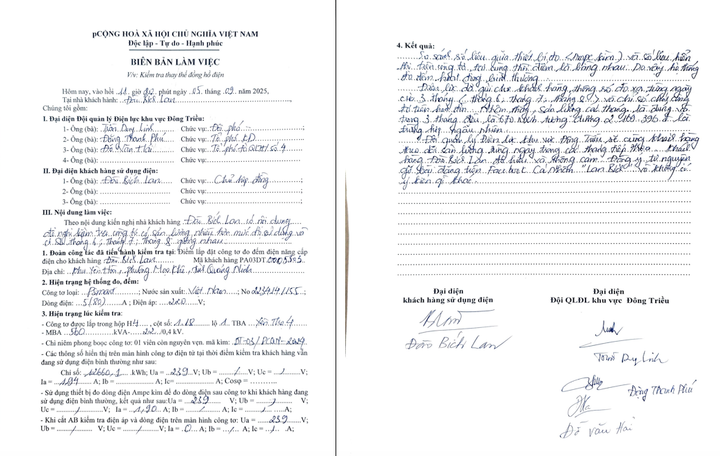 pCỘNG HOÀ XÃ HỘI CHỦ NGHĨA VIỆT NAM
Độc lập - Tự do - Hạnh phúc
BIÊN BẢN LÀM VIỆC
V/v: Kiểm tra thay thế đồng hồ điện
Hôm nay, vào hồi 11 giờ 00 phút ngày 05 tháng 09 năm 2025,
Tại nhà khách hàng: Đào Bích Lan
Chúng tôi gồm:
I. Đại diện Đội Quản lý Điện lực khu vực Đông Triều:
1- Ông (bà): Trần Duy Linh Chức vụ: Đội phó
2- Ông (bà): Đồng Thanh Phú Chức vụ: Tổ phó KD
3- Ông (bà): Đỗ Văn Hải Chức vụ: Tổ phó tổ QLĐH số 4
4- Ông (bà): Chức vụ:
II. Đại diện khách hàng sử dụng điện:
1- Ông (bà): Đào Bích Lan Chức vụ: Chủ hợp đồng
2- Ông (bà): Chức vụ:
3- Ông (bà): Chức vụ:
III. Nội dung làm việc:
Theo nội dung kiến nghị nhà khách hàng Đào Bích Lan có nội dung
đề nghị kiểm tra công tơ vì sản lượng nhiều trên mức đã sử dụng và
chỉ số tháng 6; tháng 7; tháng 8 giống nhau
1. Đoàn công tác đã tiến hành kiểm tra tại: Điểm lắp đặt công tơ đo đếm điện năng cấp
điện cho khách hàng Đào Bích Lan Mã khách hàng PA03DT
Địa chỉ: Khu Yên Hòa, phường Mạo Khê, tỉnh Quảng Ninh
2. Hiện trạng hệ thống đo, đếm:
Công tơ loại: Psmart; Nước sản xuất: Việt Nam; No
Dòng điện: 5(80) A; Điện áp: 220 V;
3. Hiện trạng lúc kiểm tra:
- Công tơ được lắp trong hộp H4, cột số: lộ 1. TBA Yên Thọ 4
- MBA 560 kVA- 22/0,4 kV.
- Chì niêm phong bọc công tơ: 01 viên còn nguyên vẹn. mã kìm:
- Các thông số hiển thị trên màn hình công tơ điện tử tại thời điểm kiểm tra khách hàng vẫn
đang sử dụng điện bình thường như sau:
Chỉ số: 12660,1 kWh; Ua = 239 V; Ub = / V; Uc = / V;
Ia = 1,84 A; Ib = A; Ic= A; Cosφ =
- Sử dụng thiết bị đo dòng điện Ampe kìm để đo dòng điện sau công tơ khi khách hàng
đang sử dụng bình thường, kết quả như sau:Ua = 239 V; Ub = / V;
Uc = / V; Ia = 1,90 A; Ib = / A; Ic = / A;
- Khi cắt AB kiểm tra điện áp và dòng điện trên màn hình công tơ: Ua = 239 V;
Ub = / V; Uc = / V; Ia = 0 A; Ib = / A; Ic = / A;
4. Kết quả:
So sánh số liệu giữa thiết bị đo (Ampe kìm) và số liệu hiển
thị trên công tơ tại cùng thời điểm là bằng nhau. Do vậy hệ thống
đo đếm hoạt động bình thường
Điện lực đã gửi cho khách hàng thông số đo xa từng ngày
của 3 tháng (tháng 6, tháng 7, tháng 8) và chỉ số
Nhận thấy sản lượng các tháng sử dụng
trong 3 tháng đều là 670 kWh tương đương 2.100.396 đ là
trường hợp ngẫu nhiên.
Đội quản lý điện lực khu vực Đông Triều sẽ cùng khách hàng
theo dõi sản lượng từng ngày trong các tháng tiếp theo. Khách
hàng Đào Bích Lan đã hiểu và thông cảm. Đồng ý tự nguyện
gỡ bài đăng trên Facebook cá nhân "Lan Bích" và không có
ý kiến gì khác.
Đại diện
khách hàng sử dụng điện
Đào Bích Lan
Đại diện
Đội QLĐL khu vực Đông Triều
Trần Duy Linh
Đồng Thanh Phú
Đỗ Văn Hải